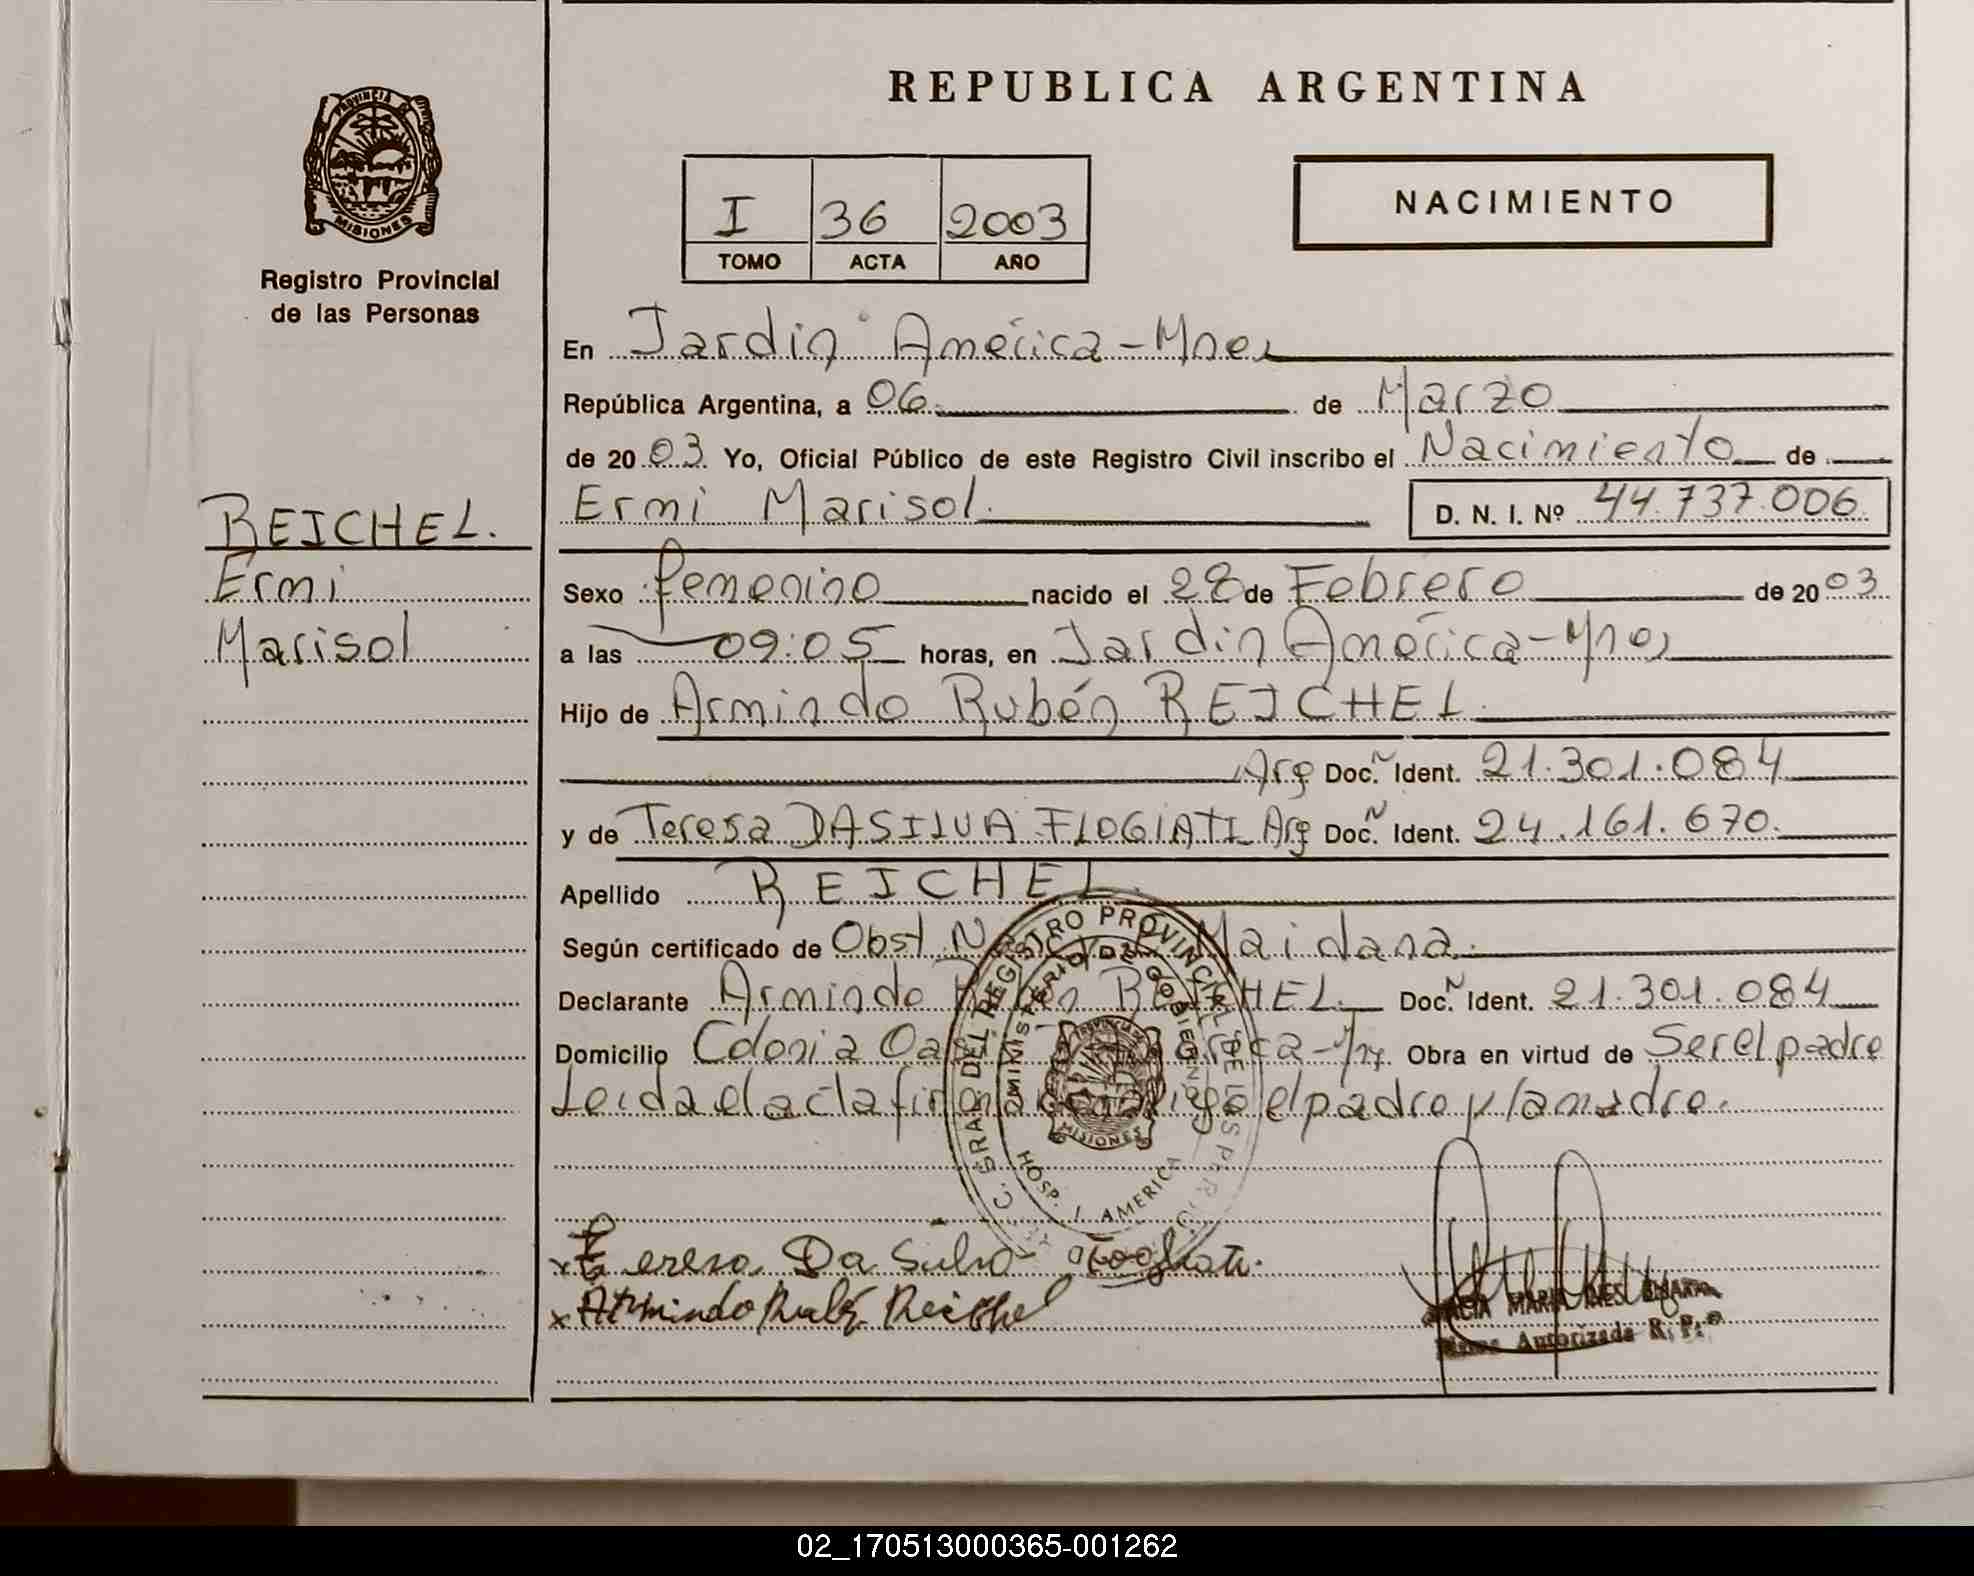 REPUBLICA ARGENTINA
PROVINCIA DE
MISIONES
Registro Provincial
de las Personas
I 36 2003
TOMO ACTA AÑO
NACIMIENTO
En Jardin America-Mnes
República Argentina, a 06 de Marzo
de 2003 Yo, Oficial Público de este Registro Civil inscribo el Nacimiento de
Ermi Marisol. D. N. I. Nº 44.737.006
REICHEL.
Ermi
Marisol
Sexo femenino nacido el 28 de Febrero de 2003
a las 09:05 horas, en Jardin America-Mnes
Hijo de Armindo Rubén REICHEL.
Arg Doc. N Ident. 21.301.084
y de Teresa DASILVA FLOGIATI Arg Doc. N Ident. 24.161.670.
Apellido REICHEL.
Según certificado de Obst. Maidana.
Declarante Armindo REICHEL. Doc. N Ident. 21.301.084
Domicilio Colonia Obra en virtud de Ser el padre
Leida el acta el padre y la madre.
REGISTRO PROVINCIAL DE LAS
MINISTERIO DE GOBIERNO
MISIONES
HOSP. J. AMERICA
x Teresa Da Silva
x Armindo Rubén Reichel
MARIA INES
Firma Autorizada R. P.
02_170513000365-001262